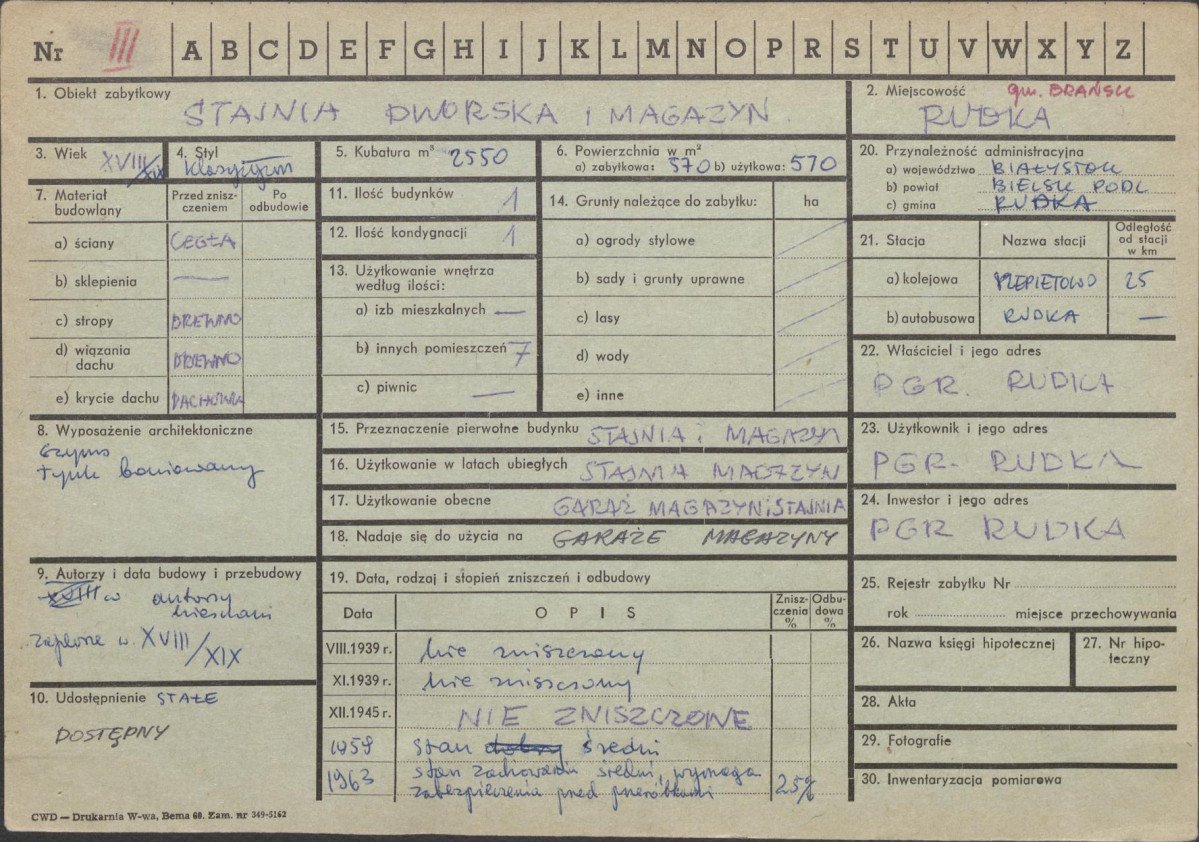 Nr III A B C D E F G H I J K L M N O P R S T U V W X Y Z
1. Obiekt zabytkowy
STAJNIA DWORSKA I MAGAZYN
2. Miejscowość gm. BRAŃSK
RUDKA
3. Wiek XVIII/XIX
4. Styl
klasycyzm
5. Kubatura m³ 2550
6. Powierzchnia w m²
a) zabytkowa: 570 b) użytkowa: 570
20. Przynależność administracyjna
a) województwo BIAŁYSTOK
b) powiat BIELSK PODL
c) gmina RUDKA
7. Materiał budowlany
Przed zniszczeniem
Po odbudowie
a) ściany CEGŁA
b) sklepienia —
c) stropy DREWNO
d) wiązania dachu DREWNO
e) krycie dachu DACHÓWKA
11. Ilość budynków 1
12. Ilość kondygnacji 1
13. Użytkowanie wnętrza
według ilości:
a) izb mieszkalnych —
b) innych pomieszczeń 7
c) piwnic —
14. Grunty należące do zabytku: ha
a) ogrody stylowe
b) sady i grunty uprawne
c) lasy
d) wody
e) inne
21. Stacja
Nazwa stacji
Odległość od stacji w km
a) kolejowa SZEPIETOWO 25
b) autobusowa RUDKA —
22. Właściciel i jego adres
PGR. RUDKA
8. Wyposażenie architektoniczne
Gzyms
Tynk boniowany
15. Przeznaczenie pierwotne budynku STAJNIA i MAGAZYN
16. Użytkowanie w latach ubiegłych STAJNIA MAGAZYN
17. Użytkowanie obecne GARAŻ MAGAZYN i STAJNIA
18. Nadaje się do użycia na GARAŻE MAGAZYNY
23. Użytkownik i jego adres
PGR. RUDKA
24. Inwestor i jego adres
PGR RUDKA
9. Autorzy i data budowy i przebudowy
XVIII w autorzy
nieznani
zapewne w. XVIII/XIX
10. Udostępnienie STAŁE
DOSTĘPNY
19. Data, rodzaj i stopień zniszczeń i odbudowy
Data
OPIS
Zniszczenia %
Odbudowa %
VIII.1939 r. nie zniszczony
XI.1939 r. nie zniszczony
XII.1945 r. NIE ZNISZCZONE
1959 stan dobry średni
1963 stan zachowania średni, wymaga
zabezpieczenia przed przeróbkami 25%
25. Rejestr zabytku Nr
rok miejsce przechowywania
26. Nazwa księgi hipotecznej
27. Nr hipoteczny
28. Akta
29. Fotografie
30. Inwentaryzacja pomiarowa
CWD — Drukarnia W-wa, Bema 60. Zam. nr 349-5162